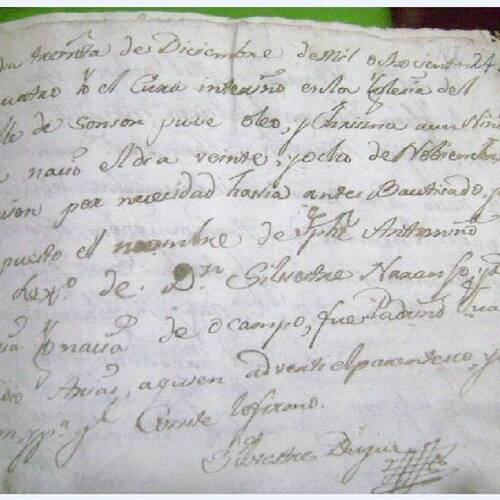 treinta de Diciembre de Mil ochocientos 24
quatro Yo el Cura interino en la Yglesia del
lle de Sonson puse oleo, y Chrisma a un Niño
nacio el dia veinte, y ocho de Nobiembre
ien por necesidad havia antes Bautisado, y
puesto el nombre de Jphe Antonino
Lexmo de Dn Silvestre Naranjo, y
Ygnacia de Ocampo, fue Padrino Jua
Arias, a quien adverti el parentesco, y
Conste lo firmo.
Silvestre